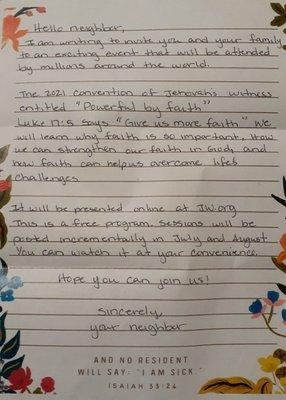 Hello neighbor,
I am writing to invite you and your family
to an exciting event that will be attended
by millions around the world.
The 2021 convention of Jehovah's witness
entitled "Powerful by faith"
Luke 17:5 says "Give us more faith" We
will learn why faith is so important. How
we can strengthen our faith in God, and
how faith can help us overcome life's
challenges
It will be presented online at JW.org
This is a free program. Sessions will be
posted incrementally in July and August
You can watch it at your convenience.
Hope you can join us!
Sincerely,
your neighbor
AND NO RESIDENT
WILL SAY: "I AM SICK."
ISAIAH 33:24